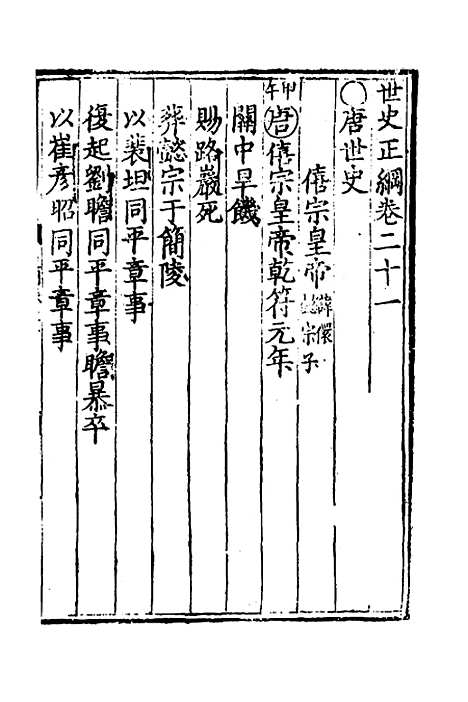 世史正綱卷二十一
○唐世史
僖宗皇帝 諱儇 懿宗子
甲午 唐僖宗皇帝乾符元年
關中旱饑
賜路巖死
葬懿宗于簡陵
以裴坦同平章事
復起劉瞻同平章事瞻暴卒
以崔彥昭同平章事